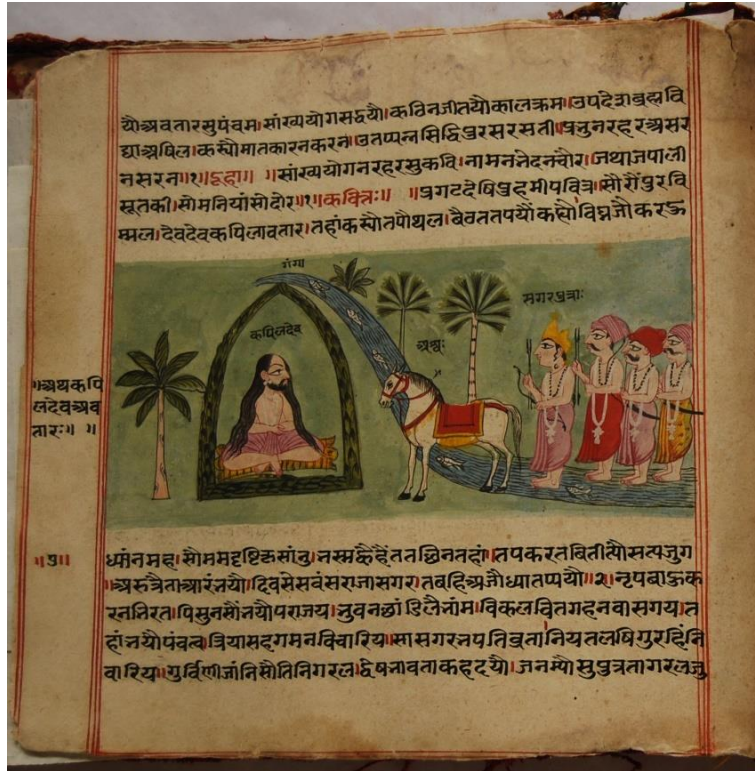 यौ।अवतारसुपंचम।सांख्ययोगसद्वयौ।कविनजीतयौकालक्रम।उपदेशब्रह्मवि
द्याअषिल।कस्यौमातकारनकरन।उतप्पलसिद्धिपुरसरसती।पुनुनरहरअसर
नसरन॥१॥दूहा॥ ॥सांख्ययोगनरहरसुकवि।नामनन्नेदनवौर।जथाजपाली
सूतकी।सोमनियांसोदोर॥१॥कवित्रिः॥ ॥प्रगटदेषिपुहमीपवित्र।सौरोंपुरवि
म्मल।देवदेवकपिलावतार।तहांकस्यौतपौथल।
गंगा
कपिलदेव
अश्वः
सगरपुत्राः
॥अथकपि
लदेवअव
तारः॥ ॥
ध्यांनमह।सौममदृष्टिकसांनु।नस्मकैहैंततछिनतहां।तपकरतबितीत्यौसत्पजुग
।अरुत्रैताआरंनयौ।दिवसेसबंसराजासगर।तबहिअजौध्यातप्पयौ॥२॥नृपबाऊक
रननिरत।पिसुनसौंनयौपराजय।नुवनछांडिलैनांम।विकलचितगहनवासगय।त
हांनयौपंचत्व।त्रियासहगमनविचारिय।
वारिय॥गुर्विणीजांनिसौतिनिगरल।द्वेषनावताकहदयौ।जनम्यौसुपुत्रतागरलजु